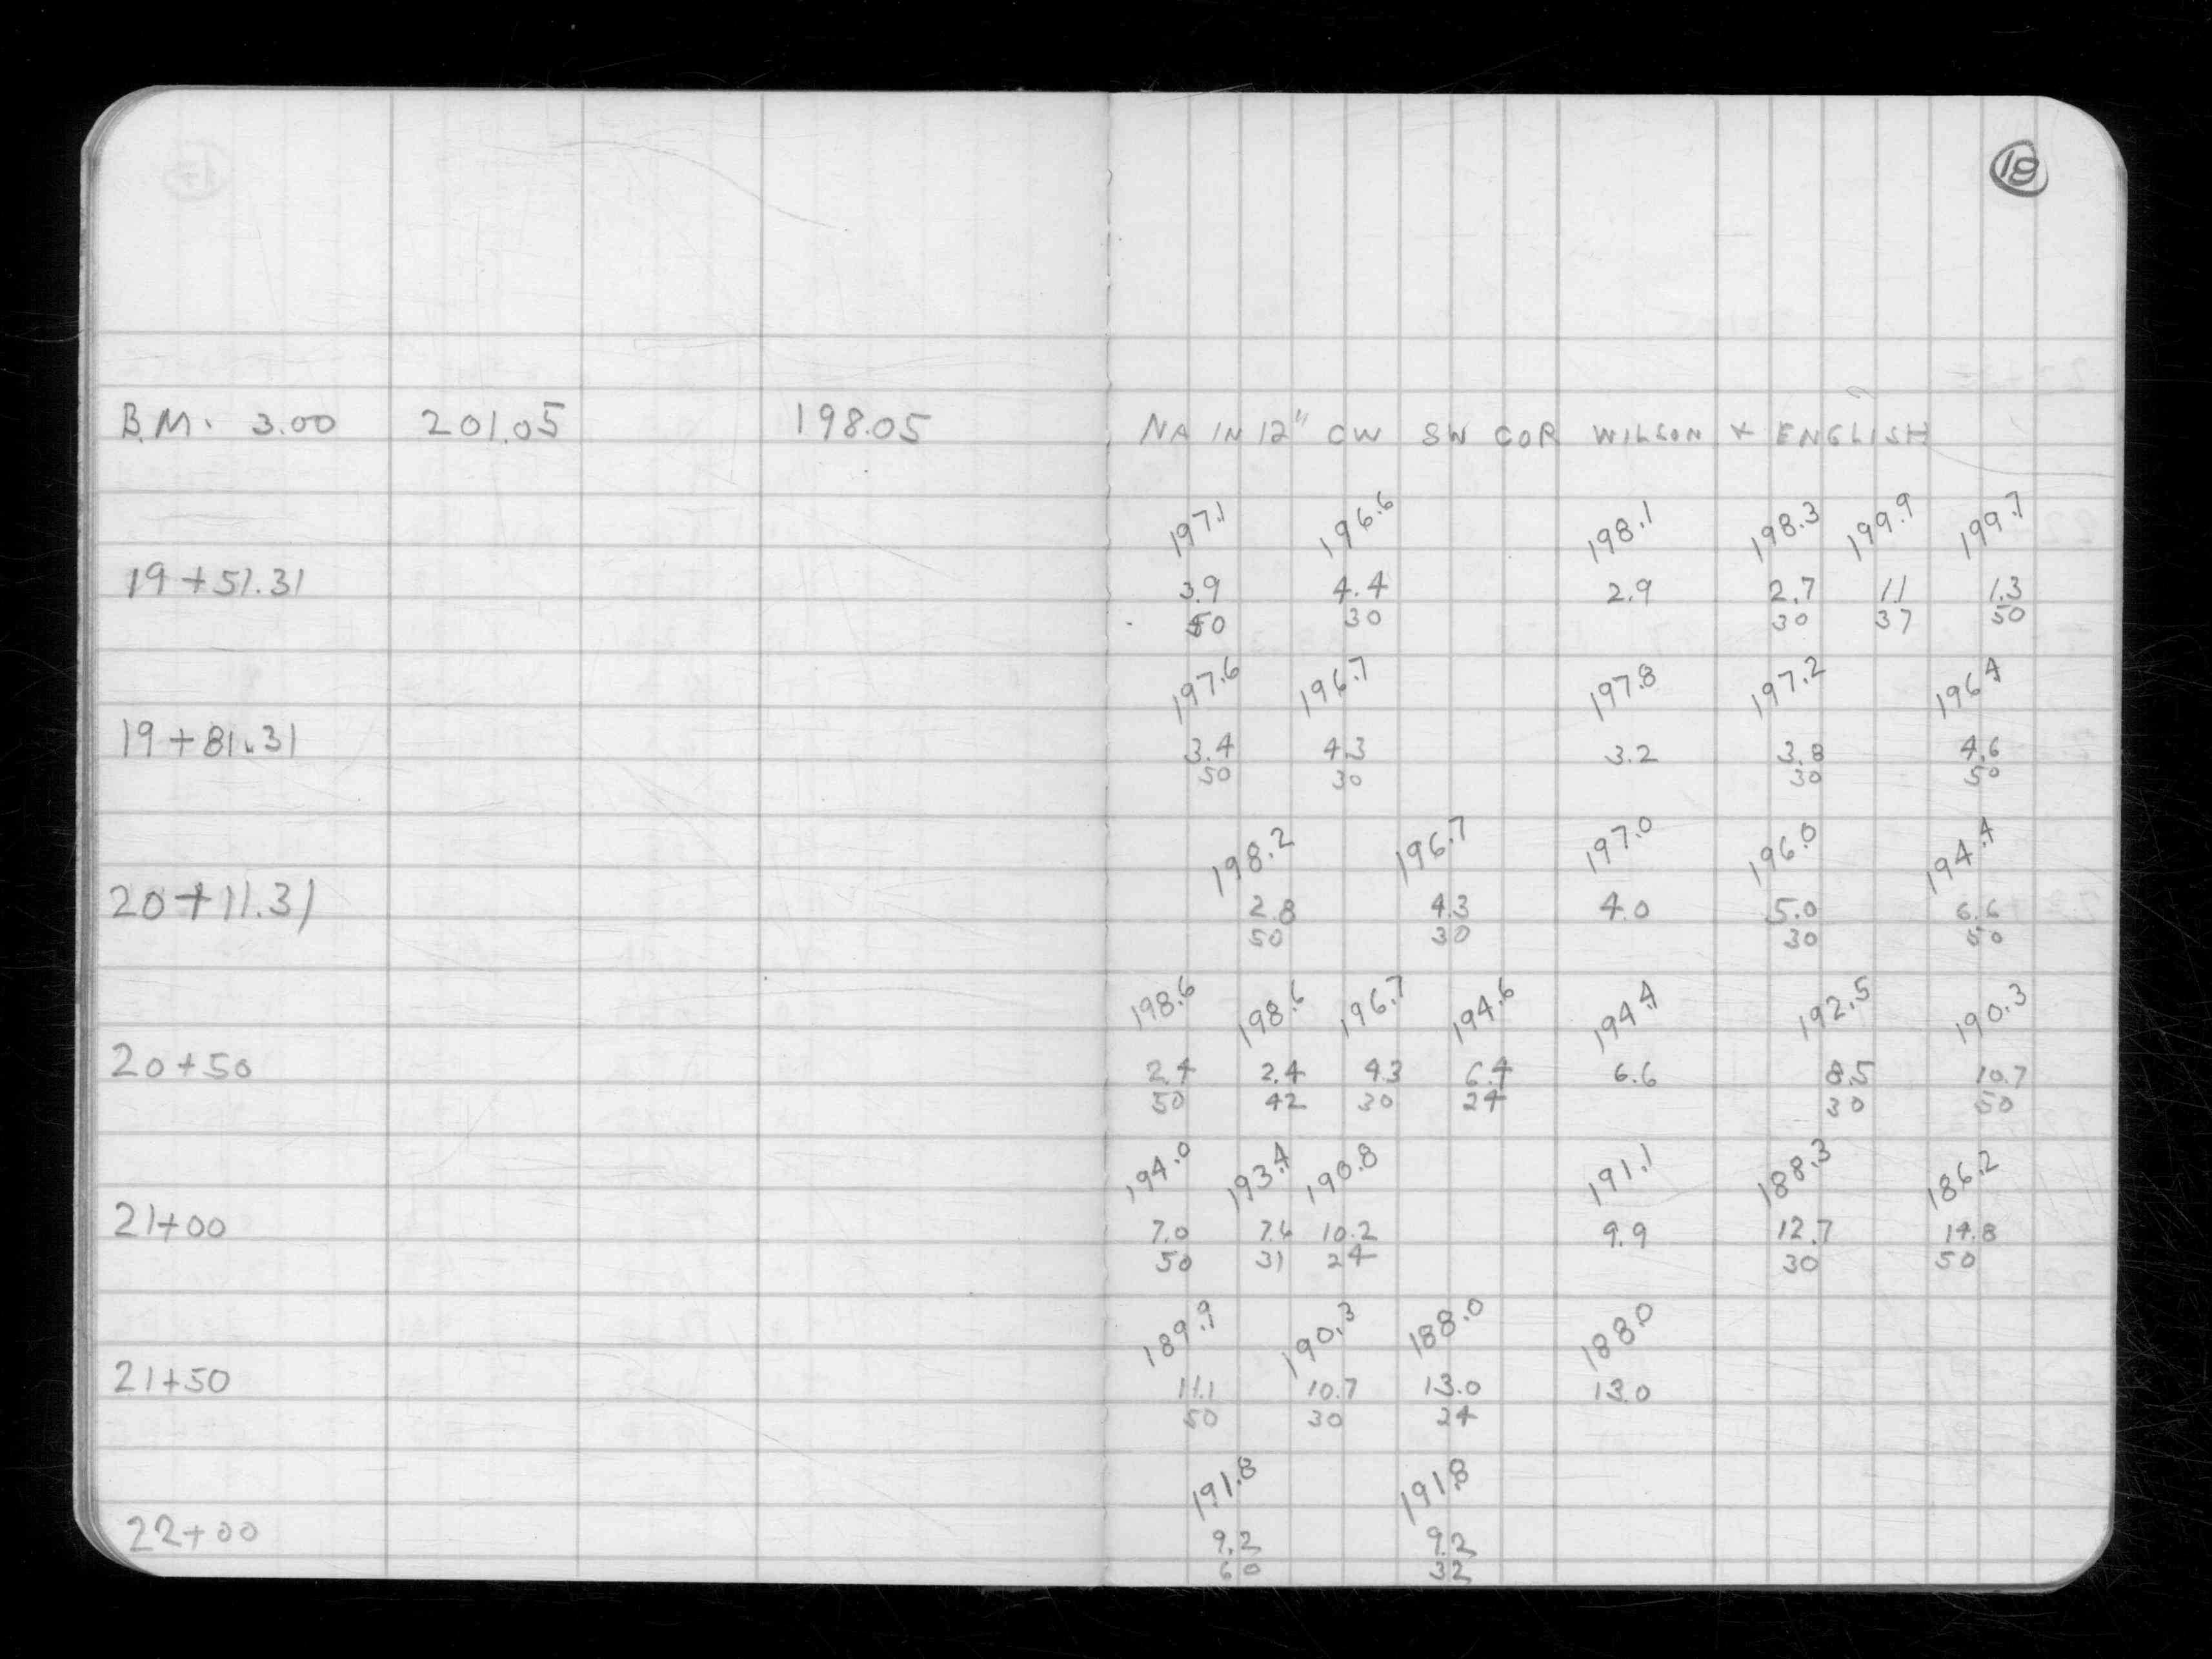 18
B.M. 3.00 201.05 198.05 NA IN 12" CW SW COR WILSON & ENGLISH
197.1 196.6 198.1 198.3 199.9 199.7
19+51.31 3.9 4.4 2.9 2.7 1.1 1.3
50 30 30 37 50
197.6 196.7 197.8 197.2 196.4
19+81.31 3.4 4.3 3.2 3.8 4.6
50 30 30 50
198.2 196.7 197.0 196.0 194.4
20+11.31 2.8 4.3 4.0 5.0 6.6
50 30 30 50
198.6 198.6 196.7 194.6 194.4 192.5 190.3
20+50 2.4 2.4 4.3 6.4 6.6 8.5 10.7
50 42 30 24 30 50
194.0 193.4 190.8 191.1 188.3 186.2
21+00 7.0 7.6 10.2 9.9 12.7 14.8
50 31 24 30 50
189.9 190.3 188.0 188.0
21+50 11.1 10.7 13.0 13.0
50 30 24
191.8 191.8
22+00 9.2 9.2
60 32